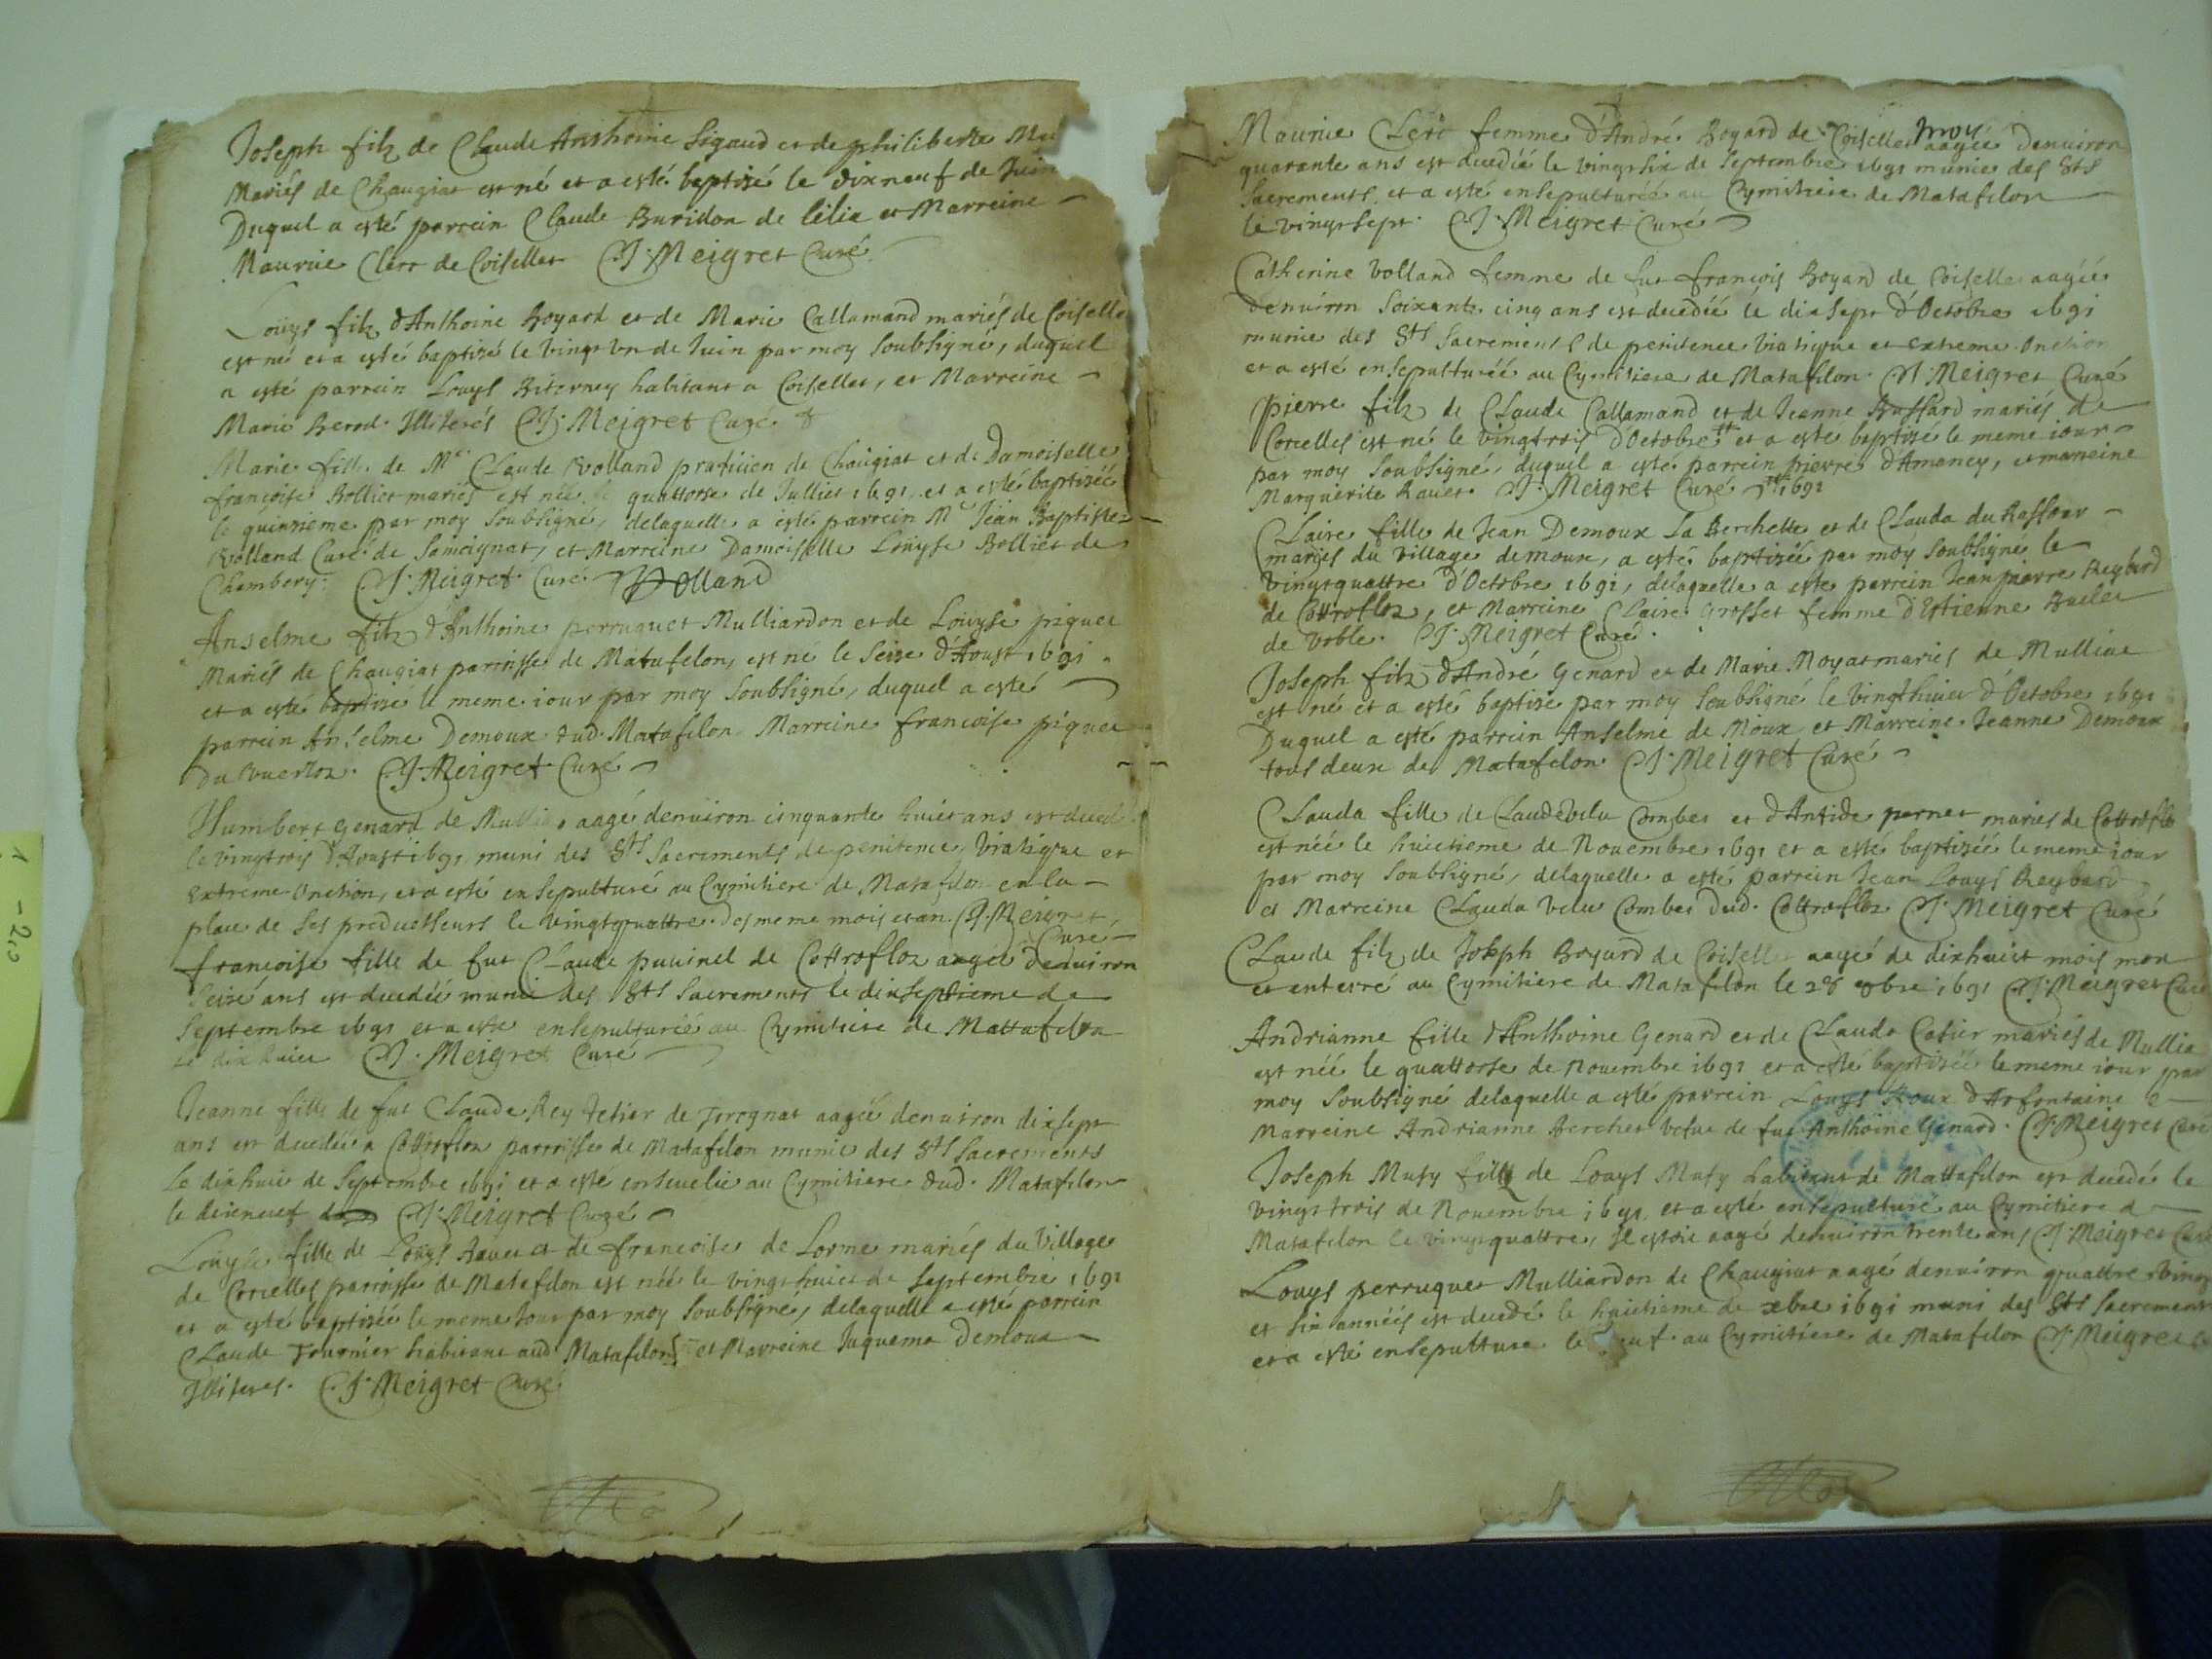 Joseph filz de Claude Anthoine Sigaud et de philiberte Mu
Mariés de Chaugiat est né et a esté baptizé le dixneuf de Juin
Duquel a esté parrein Claude Buridon de Cilia et Marreine
Maurice Clerc de Coiselles CJ. Meigret Curé
Loüys filz d'Anthoine Boyard et de Marie Callamand mariés de Coiselle
est né et a esté baptizé le vingt un de Juin par moy soubsigné, duquel
a esté parrein Louys habitant a Coiselles, et Marreine
Marie Illiterés CJ. Meigret Curé
Marie fille de Mr. Claude Volland praticien de Chaugiat et de Damoiselle
françoise Bolliet mariés est née le quattorse de Julliet 1691 et a esté baptizéé
le quinzieme par moy soubsigné, delaquelle a esté parrein Mr Jean Baptiste
Volland Curé de Samoignat, et Marreine Damoiselle Loüyse Bolliet de
Chambery. CJ. Meigret Curé Volland
Anselme filz d'Anthoine perruquet Mulliardon et de Loüyse piquet
Mariés de Chaugiat parroisse de Matafelon, est né le seize d'Aoust 1691
et a esté baptizé le meme iour par moy soubsigné, duquel a esté
parrein Anselme Demoux dud. Matafelon Marreine francoise piquet
du CJ. Meigret Curé
Humbert Genard de Mullia aagé denuiron cinquante huict ans est deced
le vingtrois d'Aoust 1691 muni des Sts Sacrements de penitence, Viatique et
Extreme Onction, et a esté ensepulturé au Cymitiere de Matafelon en la
place de ses predecesseurs le vingtquattre des meme mois et an. CJ. Meigret
Curé
francoise fille de fut Claude puuinel de Cottrofloz aagéé denuiron
seize ans est decedéé munie des Sts Sacrements le dixseptieme de
Septembre 1691 et a esté ensepulturéé au Cymitiere de Mattafelon
le dix huict CJ. Meigret Curé
Jeanne fille de fut Claude Rey Tetier de aagéé denuiron dixsept
ans est decedéé a Cottrofloz parroisse de Matafelon munie des Sts Sacrements
Le dixhuict de Septembre 1691 et a esté enseuelie au Cymitiere dud. Matafelon
le dixneuf CJ. Meigret Curé
Louyse fille de Loüys Rauet et de francoise de Lorme mariés du Village
de Corcelles parroisse de Matafelon est néé le vingt huict de Septembre 1691
et a esté baptizéé le meme iour par moy soubsigné, delaquelle a esté parrein
Claude Tournier habitant aud. Matafelon, et Marreine Jaquema Demoux
Illiterés. CJ. Meigret Curé
Maurice Clerc femme d'André Boyard de Coiselles aagéé denuiron
moy
quarante ans est decedéé le vingtsix de Septembre 1691 munie des Sts
Sacrements, et a esté ensepulturéé au Cymitiere de Matafelon
le vingtsept. CJ. Meigret Curé
Catherine Volland femme de fut françois Boyard de Coiselles aagéé
denuiron soixante cinq ans est decedéé le dixsept d'Octobre 1691
munie des Sts Sacrements de penitence Viatique et Extreme Onction
et a esté ensepulturéé au Cymitiere de Matafelon. CJ. Meigret Curé
pierre filz de Claude Callamand et de Jeanne Bussard mariés de
Corcelles est né le vingtrois d'Octobre et a esté baptizé le meme iour
par moy soubsigné, duquel a esté parrein pierre d'Amancy, et marreine
Marguerite Rauet. CJ. Meigret Curé 1691
Claire fille de Jean Demoux La Berchette et de Clauda du Raffour
mariés du village demoux, a esté baptizéé par moy soubsigné le
vingtquattre d'Octobre 1691, delaquelle a esté parrein Jean pierre Reybard
de Cottrofloz, et Marreine Claire Grosset femme d'Estienne
de Voble. CJ. Meigret Curé.
Joseph filz d'André Genard et de Marie Moyat mariés de Mulliat
est né et a esté baptizé par moy soubsigné le vingthuict d'Octobre 1691
Duquel a esté parrein Anselme de Moux et Marreine Jeanne Demoux
tous deux de Matafelon. CJ. Meigret Curé
Clauda fille de Claude Velu Combet et d'Antide pernet mariés de Cottrofloz
est néé le huictieme de Nouembre 1691 et a esté baptizéé le meme iour
par moy soubsigné, delaquelle a esté parrein Jean Louys Reybard
et Marreine Clauda Velu Combet dud. Cottrofloz CJ. Meigret Curé
Claude filz de Joseph Boyard de Coiselles aagé de dixhuict mois mort
et enterré au Cymitiere de Matafelon le 28 8bre 1691 CJ. Meigret Curé
Andrianne fille d'Anthoine Genard et de Claude Catier mariés de Mullia
est néé le quattorse de Nouembre 1691 et a esté baptizéé le meme iour par
moy soubsigné delaquelle a esté parrein Louys Roux d'Arfontaine et
Marreine Andrianne Berchet Vefue de fut Anthoine Genard. CJ. Meigret Curé
Joseph Musy filz de Louys Musy habitant de Mattafelon est decedé le
vingt trois de Nouembre 1691 et a esté ensepulturé au Cymitiere de
Matafelon le vingtquattre, Il estoit aagé denuiron trente ans CJ. Meigret Curé
Louys perruquet Mulliardon de Chaugiat aagé denuiron quattre vingt
et six annéés est decedé le huictieme de xbre 1691 muni des Sts Sacrements
et a esté ensepulturé le neuf au Cymitiere de Matafelon CJ. Meigret